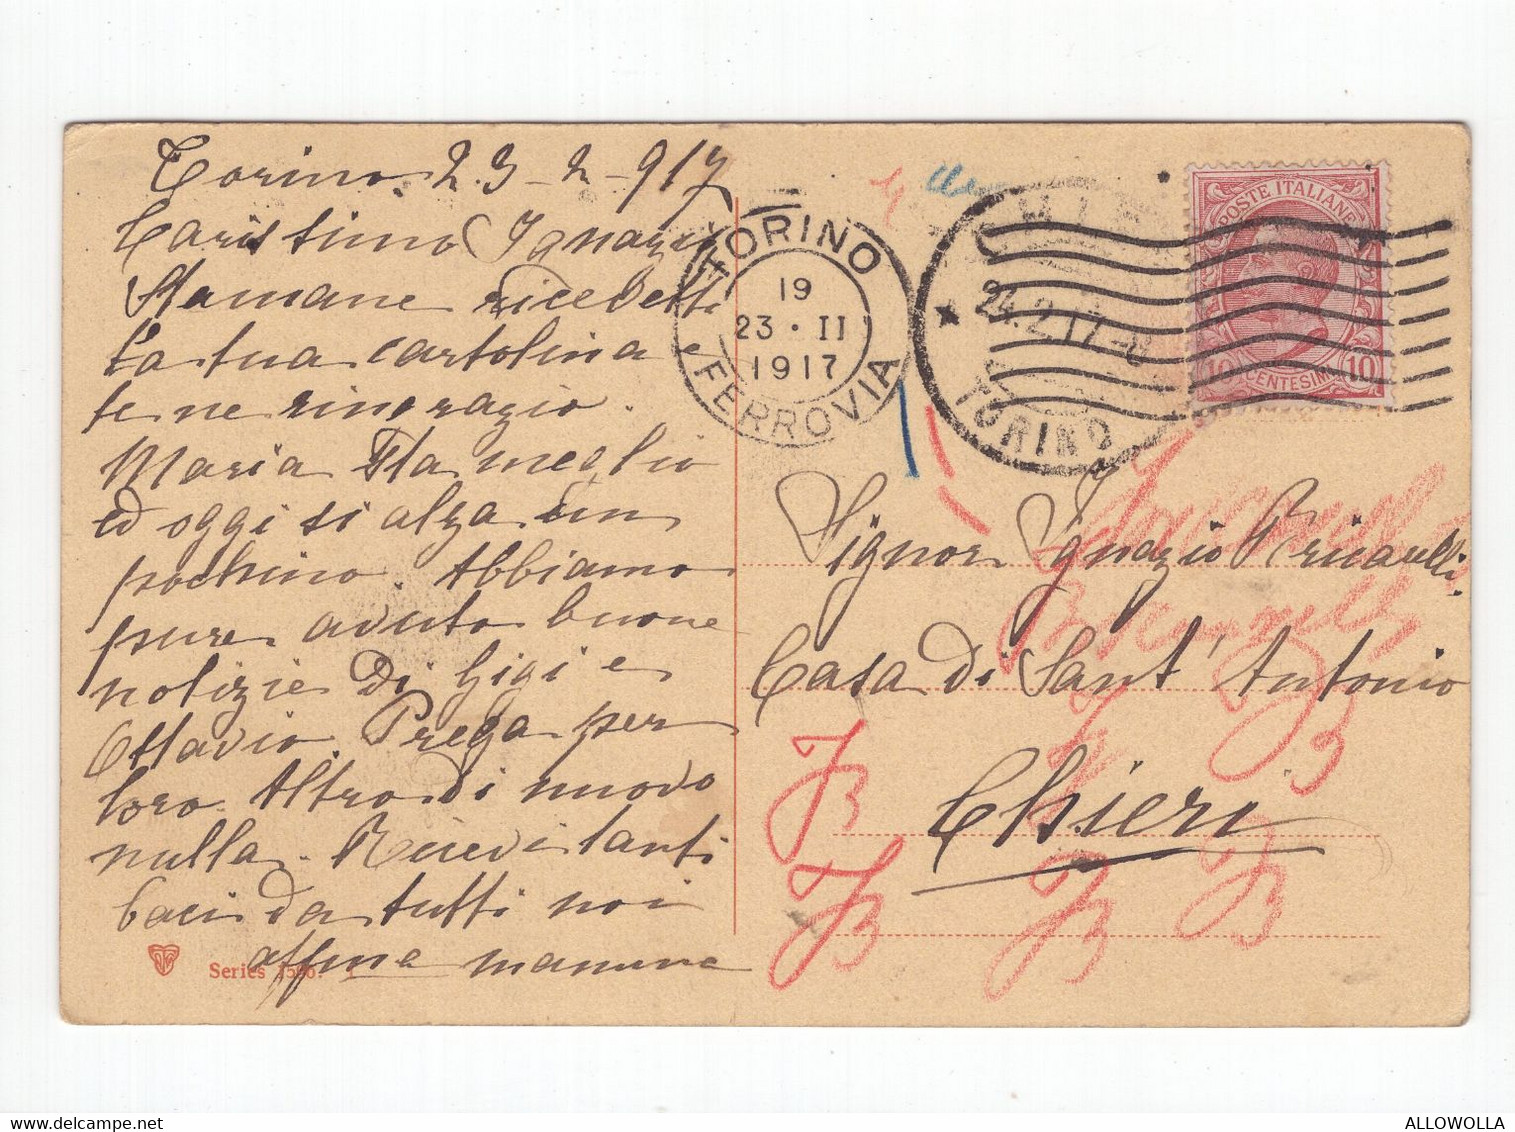 Torino. 23-2-917
Carissimo Ignazio
Stamane ricevetti
la tua cartolina e
te ne ringrazio.
Maria sta meglio
ed oggi si alza un
pochino. Abbiamo
pure avuto buone
notizie di Gigi e
Ottavio. Prega per
loro. Altro di nuovo
nulla. Ricevi tanti
baci da tutti noi
affma mamma
Series
TORINO
19
23 · II
1917
FERROVIA
24.2.17
TORINO
POSTE ITALIANE
10 CENTESIMI 10
Signor Ignazio
Casa di Sant'Antonio
Chieri
ALLOWOLLA